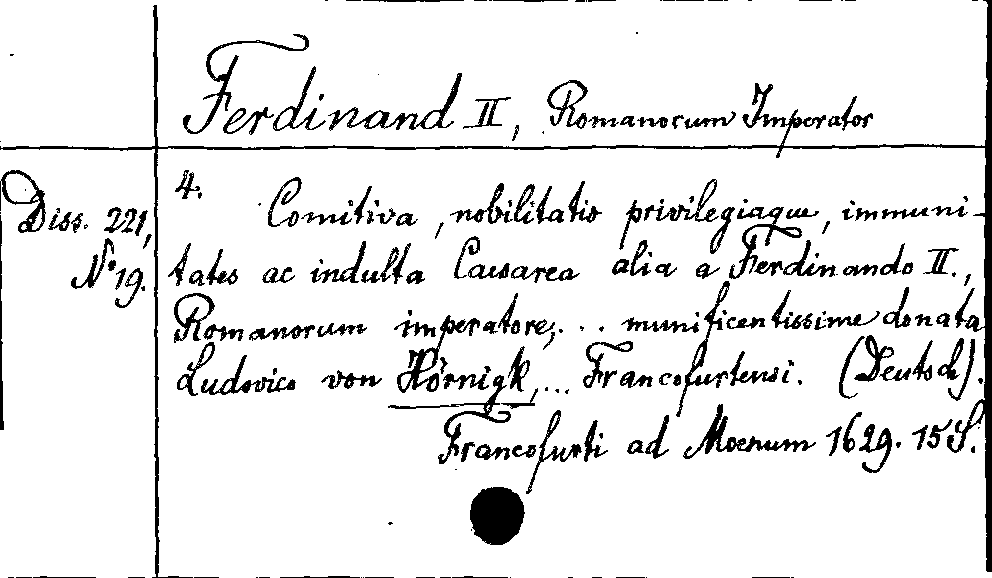 Ferdinand II, Romanorum Imperator
Diss. 221,
No 19.
4.
Comitiva, nobilitatis privilegiaque, immuni-
tates ac indulta Caesarea alia a Ferdinando II.,
Romanorum imperatore,... munificentissime donata
Ludovico von Hörnigk,... Francofurtensi. (Deutsch).
Francofurti ad Moenum 1629. 15 S.